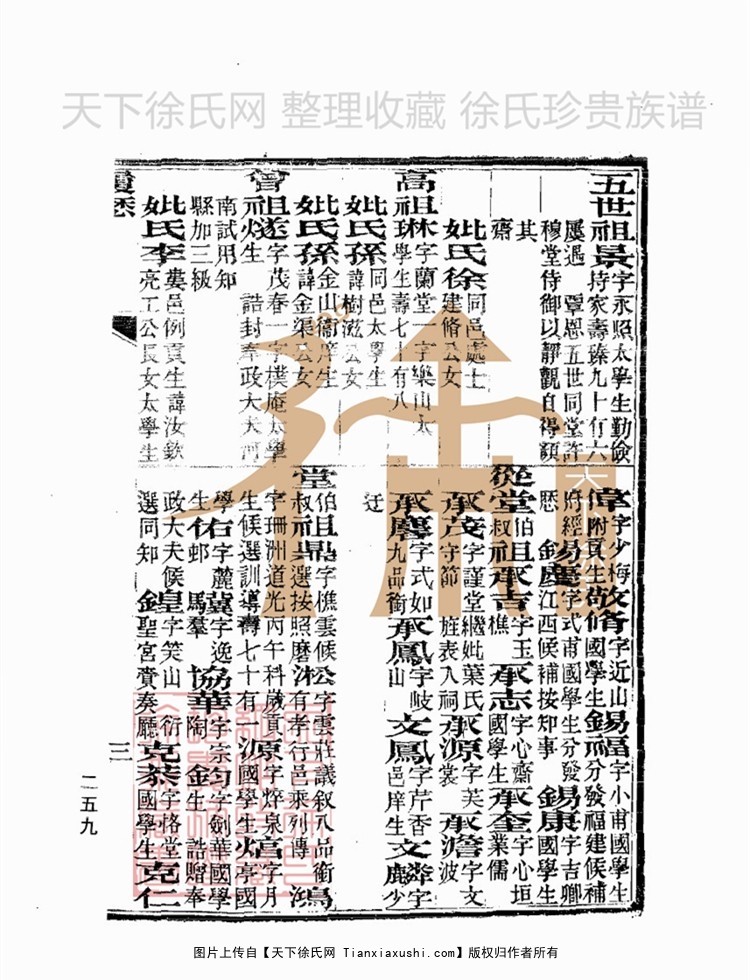 天下徐氏网 整理收藏 徐氏珍贵族谱
五世祖景字永照太學生勤儉
持家壽臻九十有六
屢遇 覃恩五世同堂許
穆堂侍御以靜觀自得額
其
齋
妣氏徐同邑處士
建脩公女
高祖琳字蘭堂一字樂山太
學生壽七十有八
妣氏孫同邑太學生
諱樹滋公女
妣氏孫金山衛庠生
諱金渠公女
曾祖字茂春一字樸庵太學
生 誥封奉政大夫河
南試用知
縣加三級
妣氏李婁邑例貢生諱汝欽
亮工公長女太學生
字少梅附貢生敬脩字近山國學生錫福字小甫國學生分發福建候補
府經歷錫慶字式甫國學生分發江西候補按知事錫康字吉卿國學生
從堂伯叔祖承吉字玉樵承志字心齋國學生承奎字心垣業儒
承茂字謹堂繼妣葉氏守節 旌表入祠承源字芙裳承澹字文波
承麐字式如九品銜承鳳字岐山文鳳字芹香邑庠生文麟字少
迂
堂伯叔祖鼎字樵雲候選按照磨淞字雲莊議叙八品銜有孝行邑乘列傳鴻
字珊洲道光丙午科歲貢生候選訓導壽七十有一源字焠泉國學生熺字月亭國
學生佑字麓邨驥字逸羣協華字宗陶鈞字劍華國學生 誥贈奉
政大夫候選同知鍠字笑山 衍聖宮賚奏廳克恭字恪堂國學生克仁
三
二五九
图片上传自【天下徐氏网 Tianxiaxushi.com】版权归作者所有